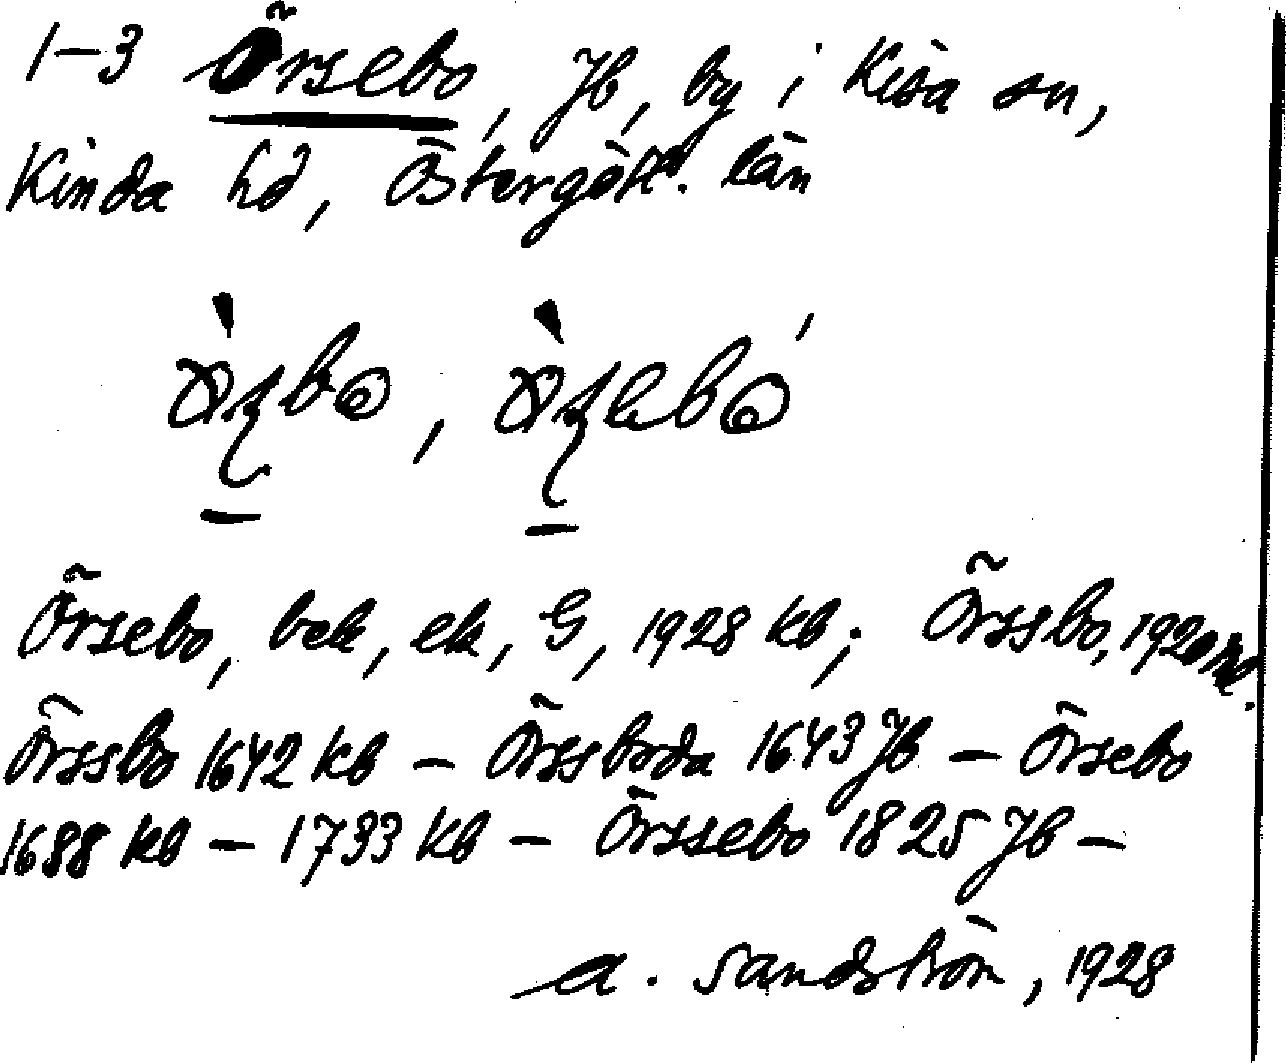 1-3 Örsebo, Jb, by i Kisa sn,
Kinda hd, Östergötl. län
Örsebo, bek, ek, G, 1928 kb; Örssbo, 1920
Örssbo 1642 kb - Örssboda 1643 Jb - Örsebo
1688 kb - 1733 kb - Örssebo 1825 Jb -
A. Sandström, 1928